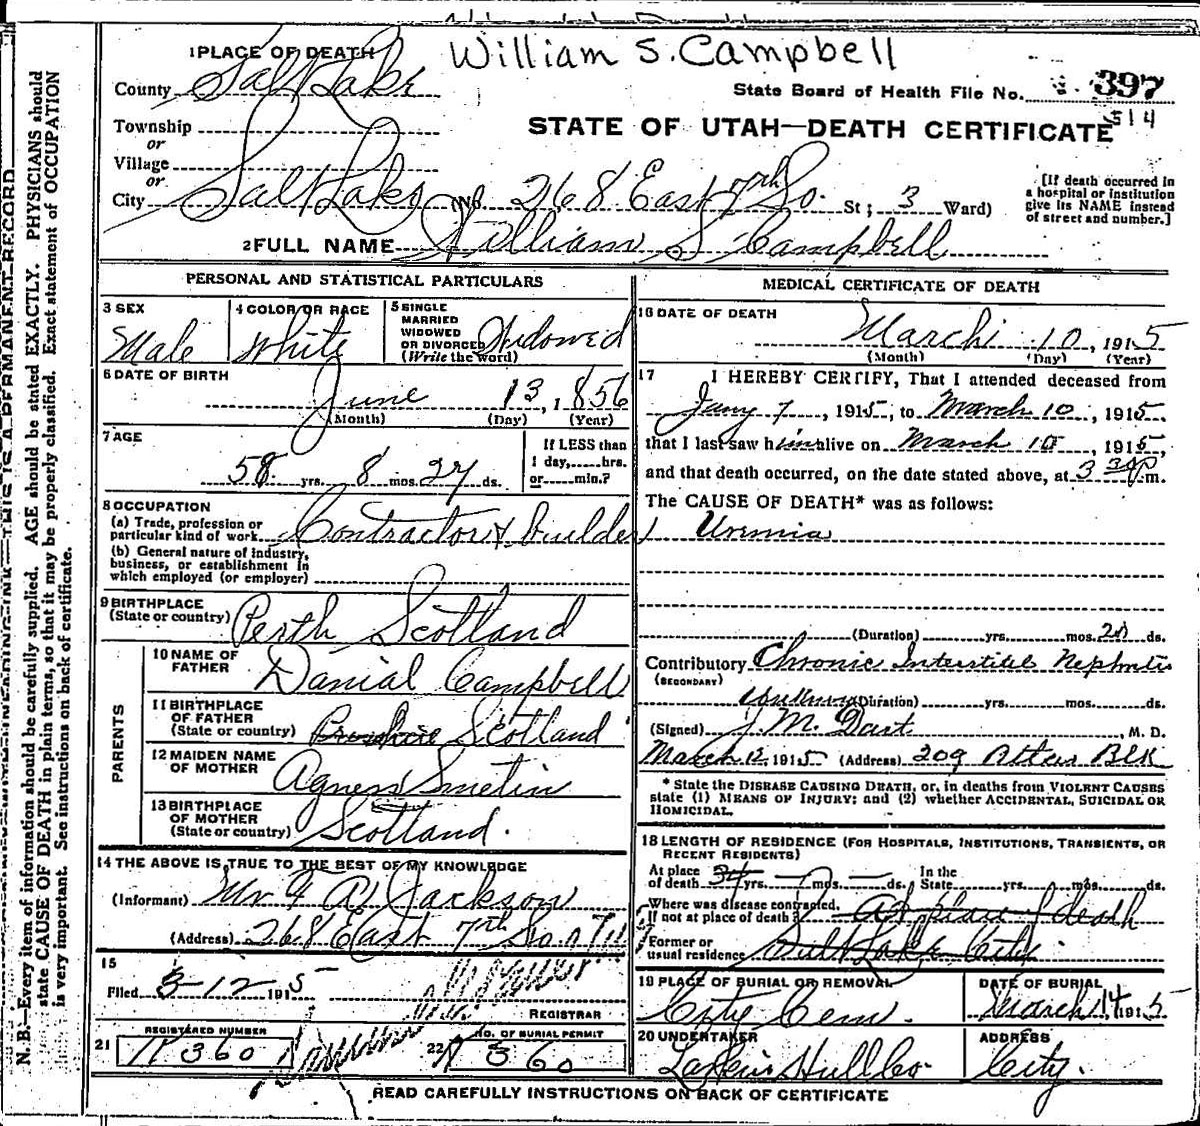 William S. Campbell
1 PLACE OF DEATH
County Salt Lake
State Board of Health File No. 397
514
Township
or
Village
or
City Salt Lake (No. 268 East 7th So. St; 3 Ward)
STATE OF UTAH—DEATH CERTIFICATE
[If death occurred in a hospital or institution give its NAME instead of street and number.]
2 FULL NAME William S Campbell
PERSONAL AND STATISTICAL PARTICULARS
3 SEX
Male
4 COLOR OR RACE
White
5 SINGLE
MARRIED
WIDOWED
OR DIVORCED
(Write the word)
Widowed
6 DATE OF BIRTH
June 13, 1856
(Month) (Day) (Year)
7 AGE
58 yrs. 8 mos. 27 ds.
If LESS than
1 day, hrs.
or min.?
8 OCCUPATION
(a) Trade, profession or
particular kind of work Contractor & Builder
(b) General nature of industry,
business, or establishment in
which employed (or employer)
9 BIRTHPLACE
(State or country) Perth Scotland
PARENTS
10 NAME OF
FATHER Danial Campbell
11 BIRTHPLACE
OF FATHER
(State or country) Scotland
12 MAIDEN NAME
OF MOTHER Agness
13 BIRTHPLACE
OF MOTHER
(State or country) Scotland.
14 THE ABOVE IS TRUE TO THE BEST OF MY KNOWLEDGE
(Informant) Mr F A Jackson
(Address) 268 East 7th So
15
Filed 3-12 1915
REGISTRAR
REGISTERED NUMBER
21 K 360
22 NO. OF BURIAL PERMIT
K 360
MEDICAL CERTIFICATE OF DEATH
16 DATE OF DEATH
March 10, 1915
(Month) (Day) (Year)
17 I HEREBY CERTIFY, That I attended deceased from
Jany 7, 1915, to March 10, 1915,
that I last saw him alive on March 10, 1915,
and that death occurred, on the date stated above, at 3 30 p. m.
The CAUSE OF DEATH* was as follows:
Uremia
(Duration) yrs. mos. 20 ds.
Contributory Chronic Interstitl Nephritis
(SECONDARY)
(Duration) yrs. mos. ds.
(Signed) J. M. Dart, M. D.
March 12 1915 (Address) 209 Atlas Blk
* State the DISEASE CAUSING DEATH, or, in deaths from VIOLENT CAUSES
state (1) MEANS OF INJURY; and (2) whether ACCIDENTAL, SUICIDAL OR
HOMICIDAL.
18 LENGTH OF RESIDENCE (FOR HOSPITALS, INSTITUTIONS, TRANSIENTS, OR
RECENT RESIDENTS)
At place
of death 34 yrs. — mos. — ds. In the
State yrs. mos. ds.
Where was disease contracted,
If not at place of death? At place of death
Former or
usual residence Salt Lake City
19 PLACE OF BURIAL OR REMOVAL
City Cem.
DATE OF BURIAL
March 14, 1915
20 UNDERTAKER
Larkin Hull Co.
ADDRESS
City.
READ CAREFULLY INSTRUCTIONS ON BACK OF CERTIFICATE
N. B.—Every item of information should be carefully supplied. AGE should be stated EXACTLY. PHYSICIANS should
state CAUSE OF DEATH in plain terms, so that it may be properly classified. Exact statement of OCCUPATION
is very important. See instructions on back of certificate.
THIS IS A PERMANENT RECORD